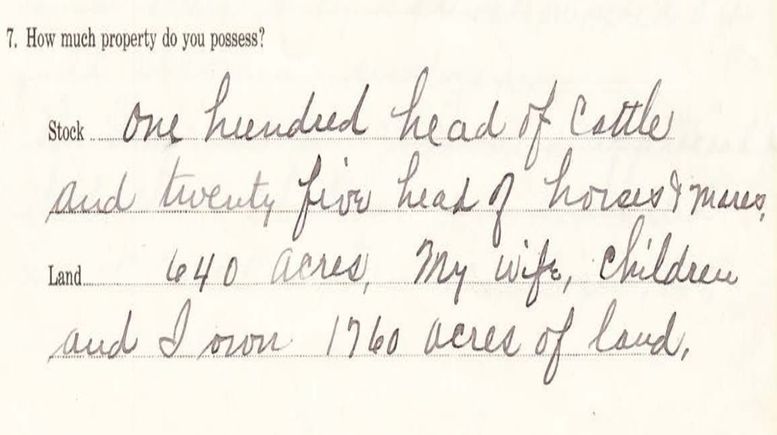 7. How much property do you possess?
Stock one hundred head of Cattle
and twenty five head of horses & mares.
Land 640 acres, My wife, children
and I own 1760 acres of land.